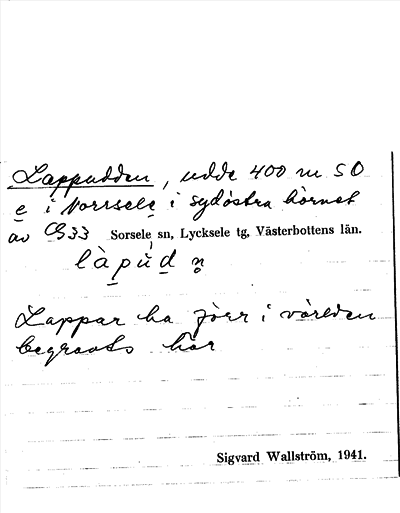 Lappudden, udde 400 m SO
e i Norrsele i sydöstra hörnet
av G33 Sorsele sn, Lycksele tg, Västerbottens län.
làpùdn̥
Lappar ha förr i världen
begravts här
Sigvard Wallström, 1941.